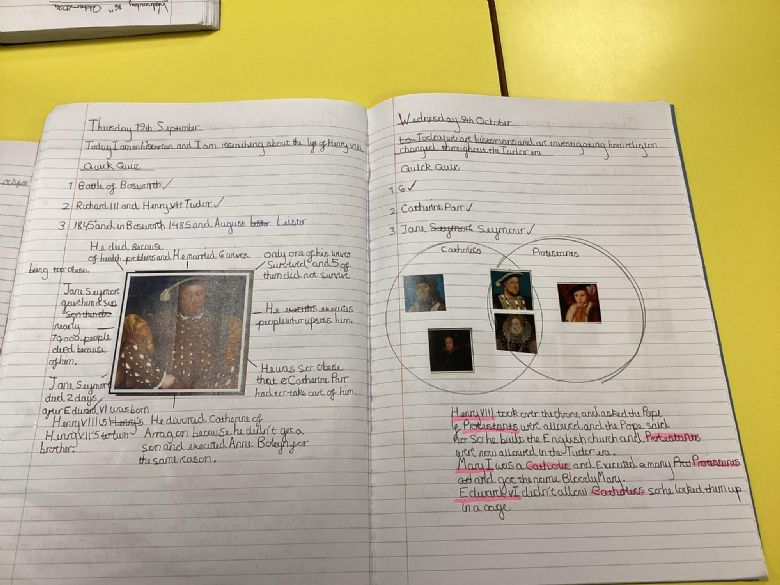 Wednesday 16th October 2024
Thursday 19th September
Today I am a historian and I am researching about the life of Henry VIII
Quick Quiz
1 Battle of Bosworth ✓
2 Richard III and Henry VII Tudor ✓
3 1845 and in Bosworth 1485 and August Leister
He died because
of health problems and
being too obese.
He married 6 wives.
only one of his wives
survived and 5 of
them did not survive
Jane Seymore
gave him a son
nearly
72000 people
died because
of him.
He executes
people who upsets him.
Jane Seymore
died 2 days
after Edward VI was born
He was so obese
that Catherine Parr
had to take care of him.
Henry VIII is
Henry VII's
brother.
He divorced Catherine of
Arragon because he didn't get a
son and executed Anne Boleyn for
the same reason.
Wednesday 9th October
Today we are historians and are investigating how religion
changed throughout the Tudor era.
Quick Quiz
1 6 ✓
2 Catherine Parr ✓
3 Jane Seymour Seymour ✓
Catholics Protestants
Henry VIII took over the throne and asked the Pope
if Protestants were allowed and the Pope said
no. So he builds the English church and Protestants
were now allowed in the Tudor era.
Mary I was a Catholic and Executed a many Pro Protestants
and got the name Bloody Mary.
Edward VI didn't allow Catholics so he locked them up
in a cage.